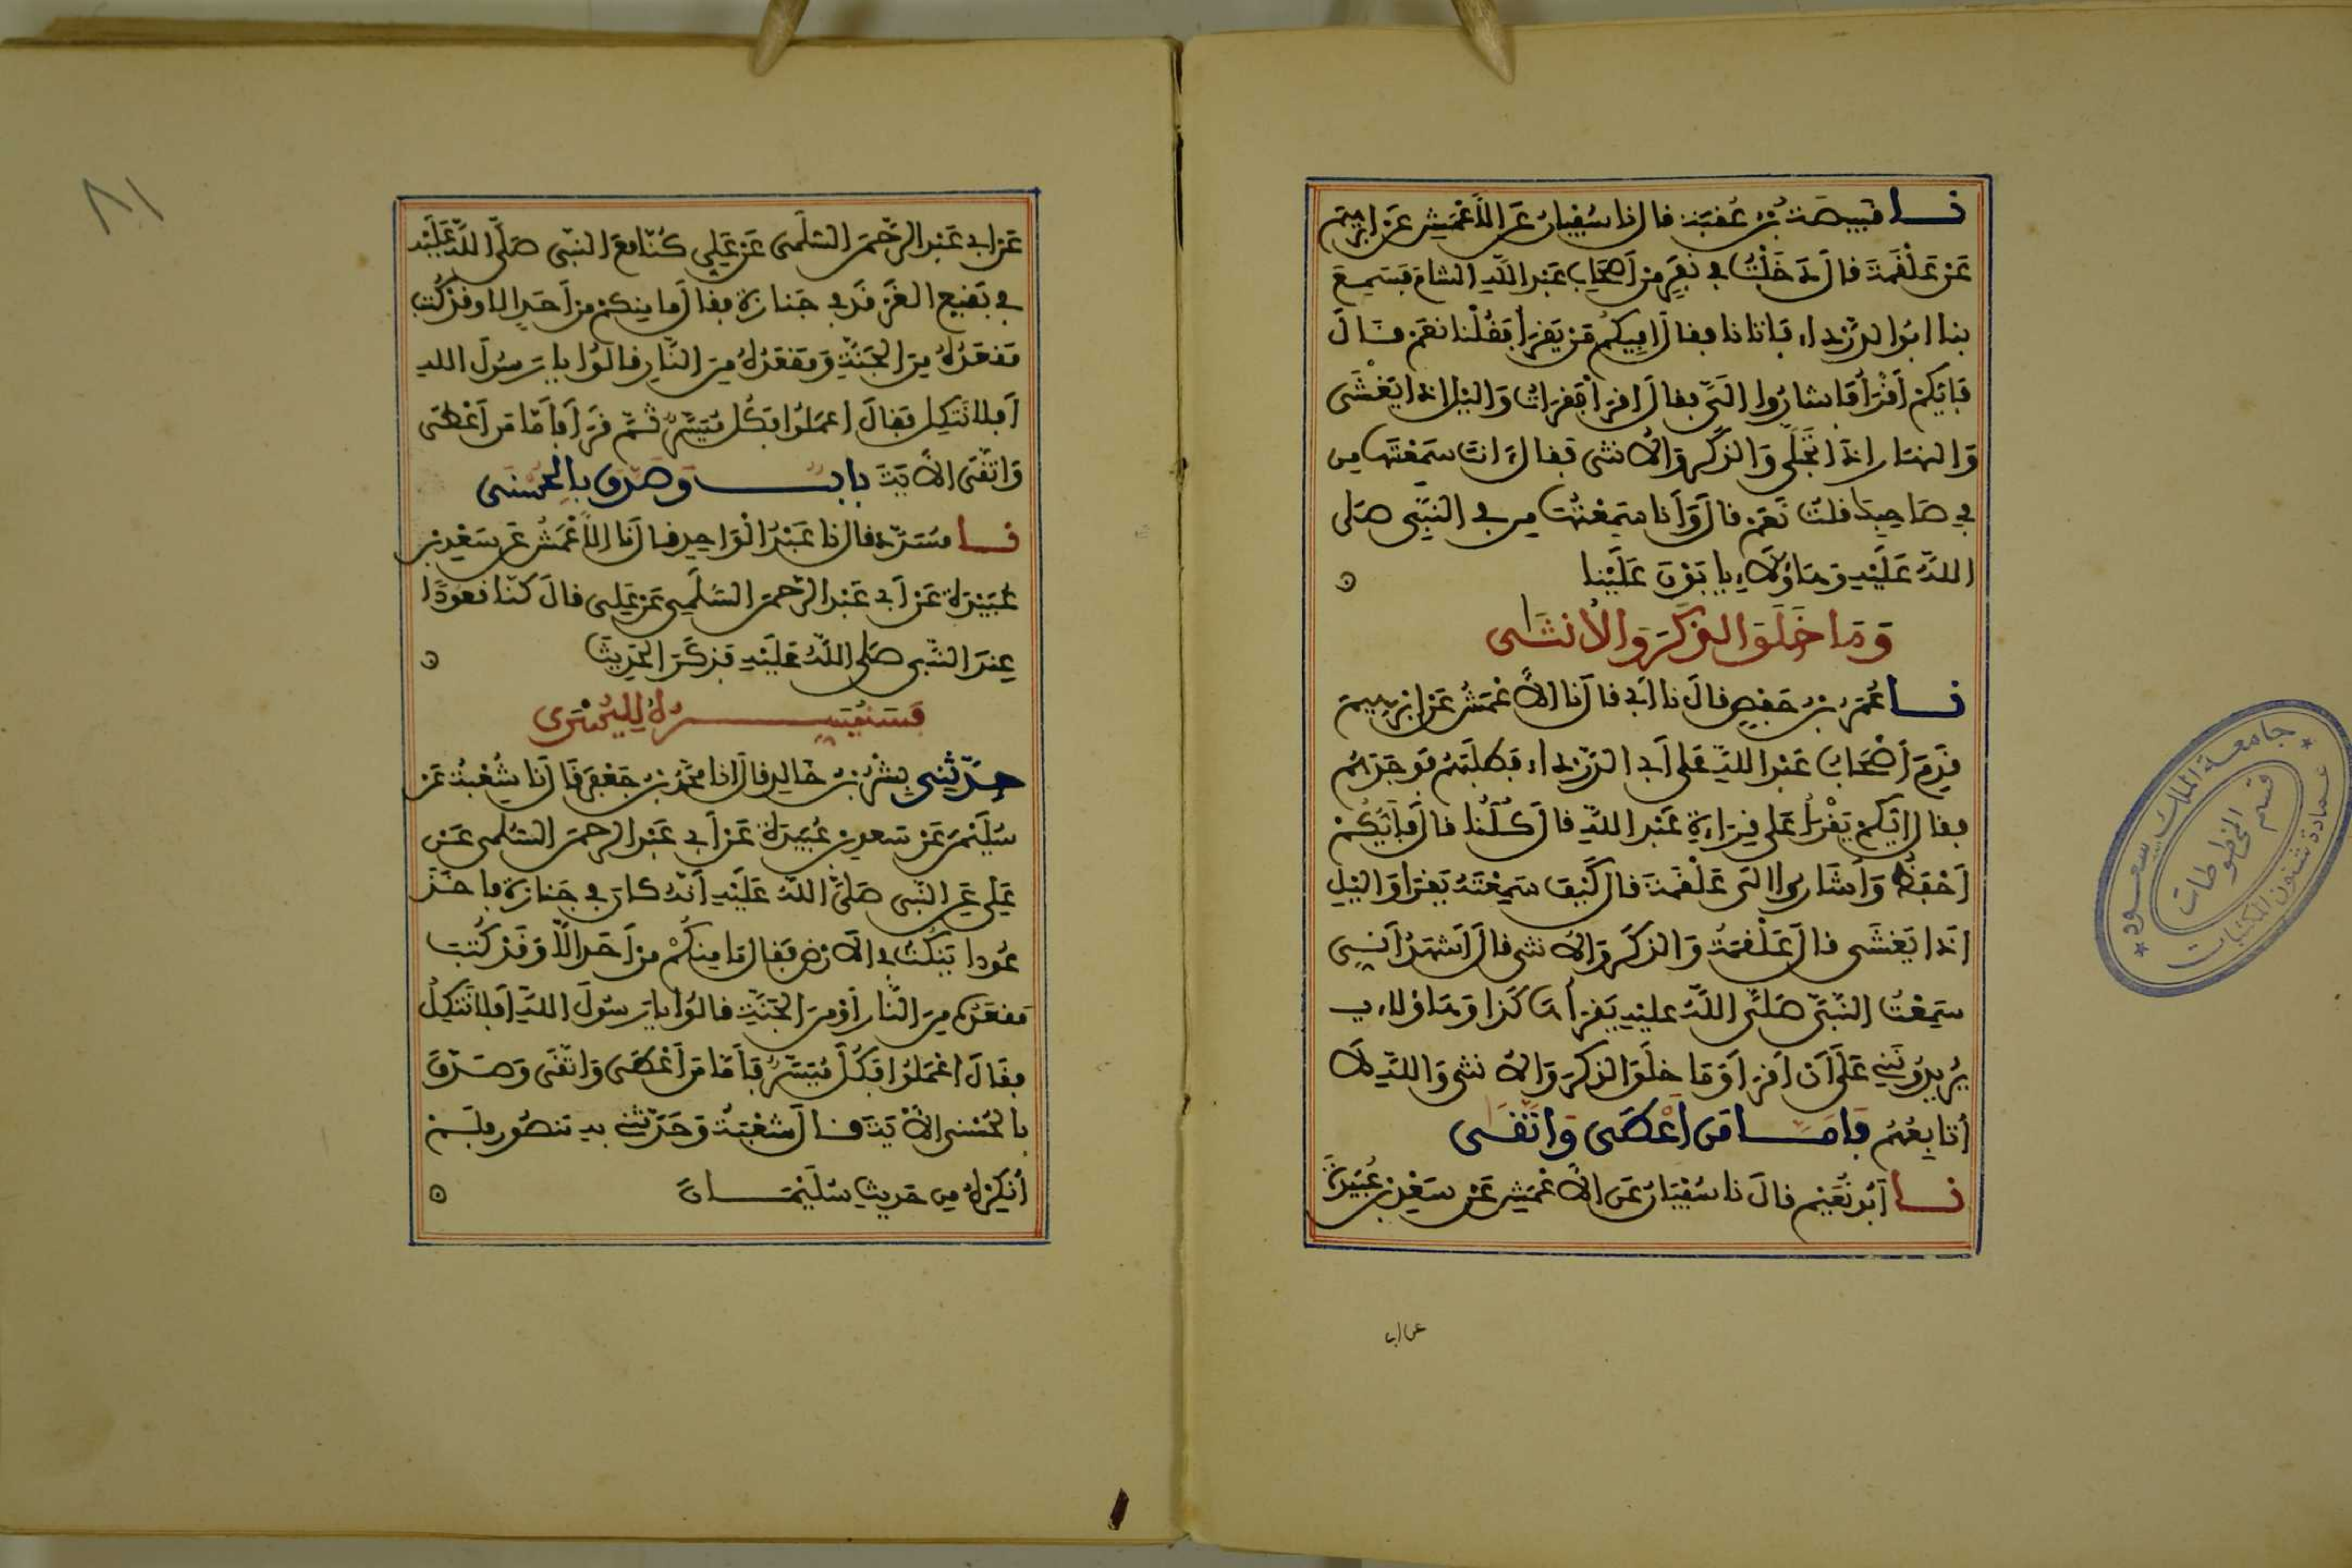 نا قبيصة بن عقبة قال نا سفيان عن الأعمش عن ابرهيم
عن علقمة قال دخلت في نفر من أصحاب عبد الله الشام فسمع
بنا ابوا الدرداء فاتانا فقال افيكم من يقرأ فقلنا نعم قال
فايكم أقرأ فأشاروا الي فقال اقرأ فقرات واليل اذا يغشى
والنهار اذا تجلى والذكر والأنثى فقال ءانت سمعتها من
في صاحبك قلت نعم قال وأنا سمعتها من في النبي صلى
الله عليه وهاؤلاء يابون علينا
وما خلق الذكر والأنثى
نا عمر بن حفص قال نا ابي قال نا الأعمش عن ابرهيم
قدم أصحاب عبد الله على أبي الدرداء فطلبهم فوجدهم
فقال ايكم يقرأ على قراءة عبد الله قال كلنا قال فأيكم
أحفظ وأشاروا الى علقمة قال كيف سمعته يقرا واليل
اذا يغشى قال علقمة والذكر والأنثى قال أشهد أني
سمعت النبي صلى الله عليه يقرأ هاكذا وهاؤلاء
يريدونني على أن اقرا وما خلق الذكر والأنثى والله لا
أتابعهم فاما من أعطى واتقى
نا أبو نعيم قال نا سفيان عن الأعمش عن سعد بن عبيدة
عن ابي
جامعة الملك سعود
عمادة شئون المكتبات
قسم المخطوطات
٨١
عن ابي عبد الرحمن السلمي عن علي كنا مع النبي صلى الله عليه
في بقيع الغرقد في جنازة فقال ما منكم من أحد الا وقد كتب
مقعده من الجنة ومقعده من النار فقالوا يا رسول الله
أفلا نتكل فقال اعملوا فكل ميسر ثم قرأ فأما من أعطى
واتقى الأية باب وصدق بالحسنى
نا مسدد قال نا عبد الواحد قال نا الأعمش عن سعد بن
عبيدة عن أبي عبد الرحمن السلمي عن علي قال كنا قعودا
عند النبي صلى الله عليه فذكر الحديث
فسنيسره لليسرى
حدثني بشر بن خالد قال نا محمد بن جعفر قال نا شعبة عن
سليمن عن سعد بن عبيدة عن أبي عبد الرحمن السلمي عن
علي عن النبي صلى الله عليه أنه كان في جنازة فاخذ
عودا ينكت في الأرض فقال ما منكم من أحد الا وقد كتب
مقعده من النار أو من الجنة قالوا يا رسول الله أفلا نتكل
فقال اعملوا فكل ميسر فأما من أعطى واتقى وصدق
بالحسنى الأية قال شعبة وحدثني به منصور فلم
أنكره من حديث سليمان